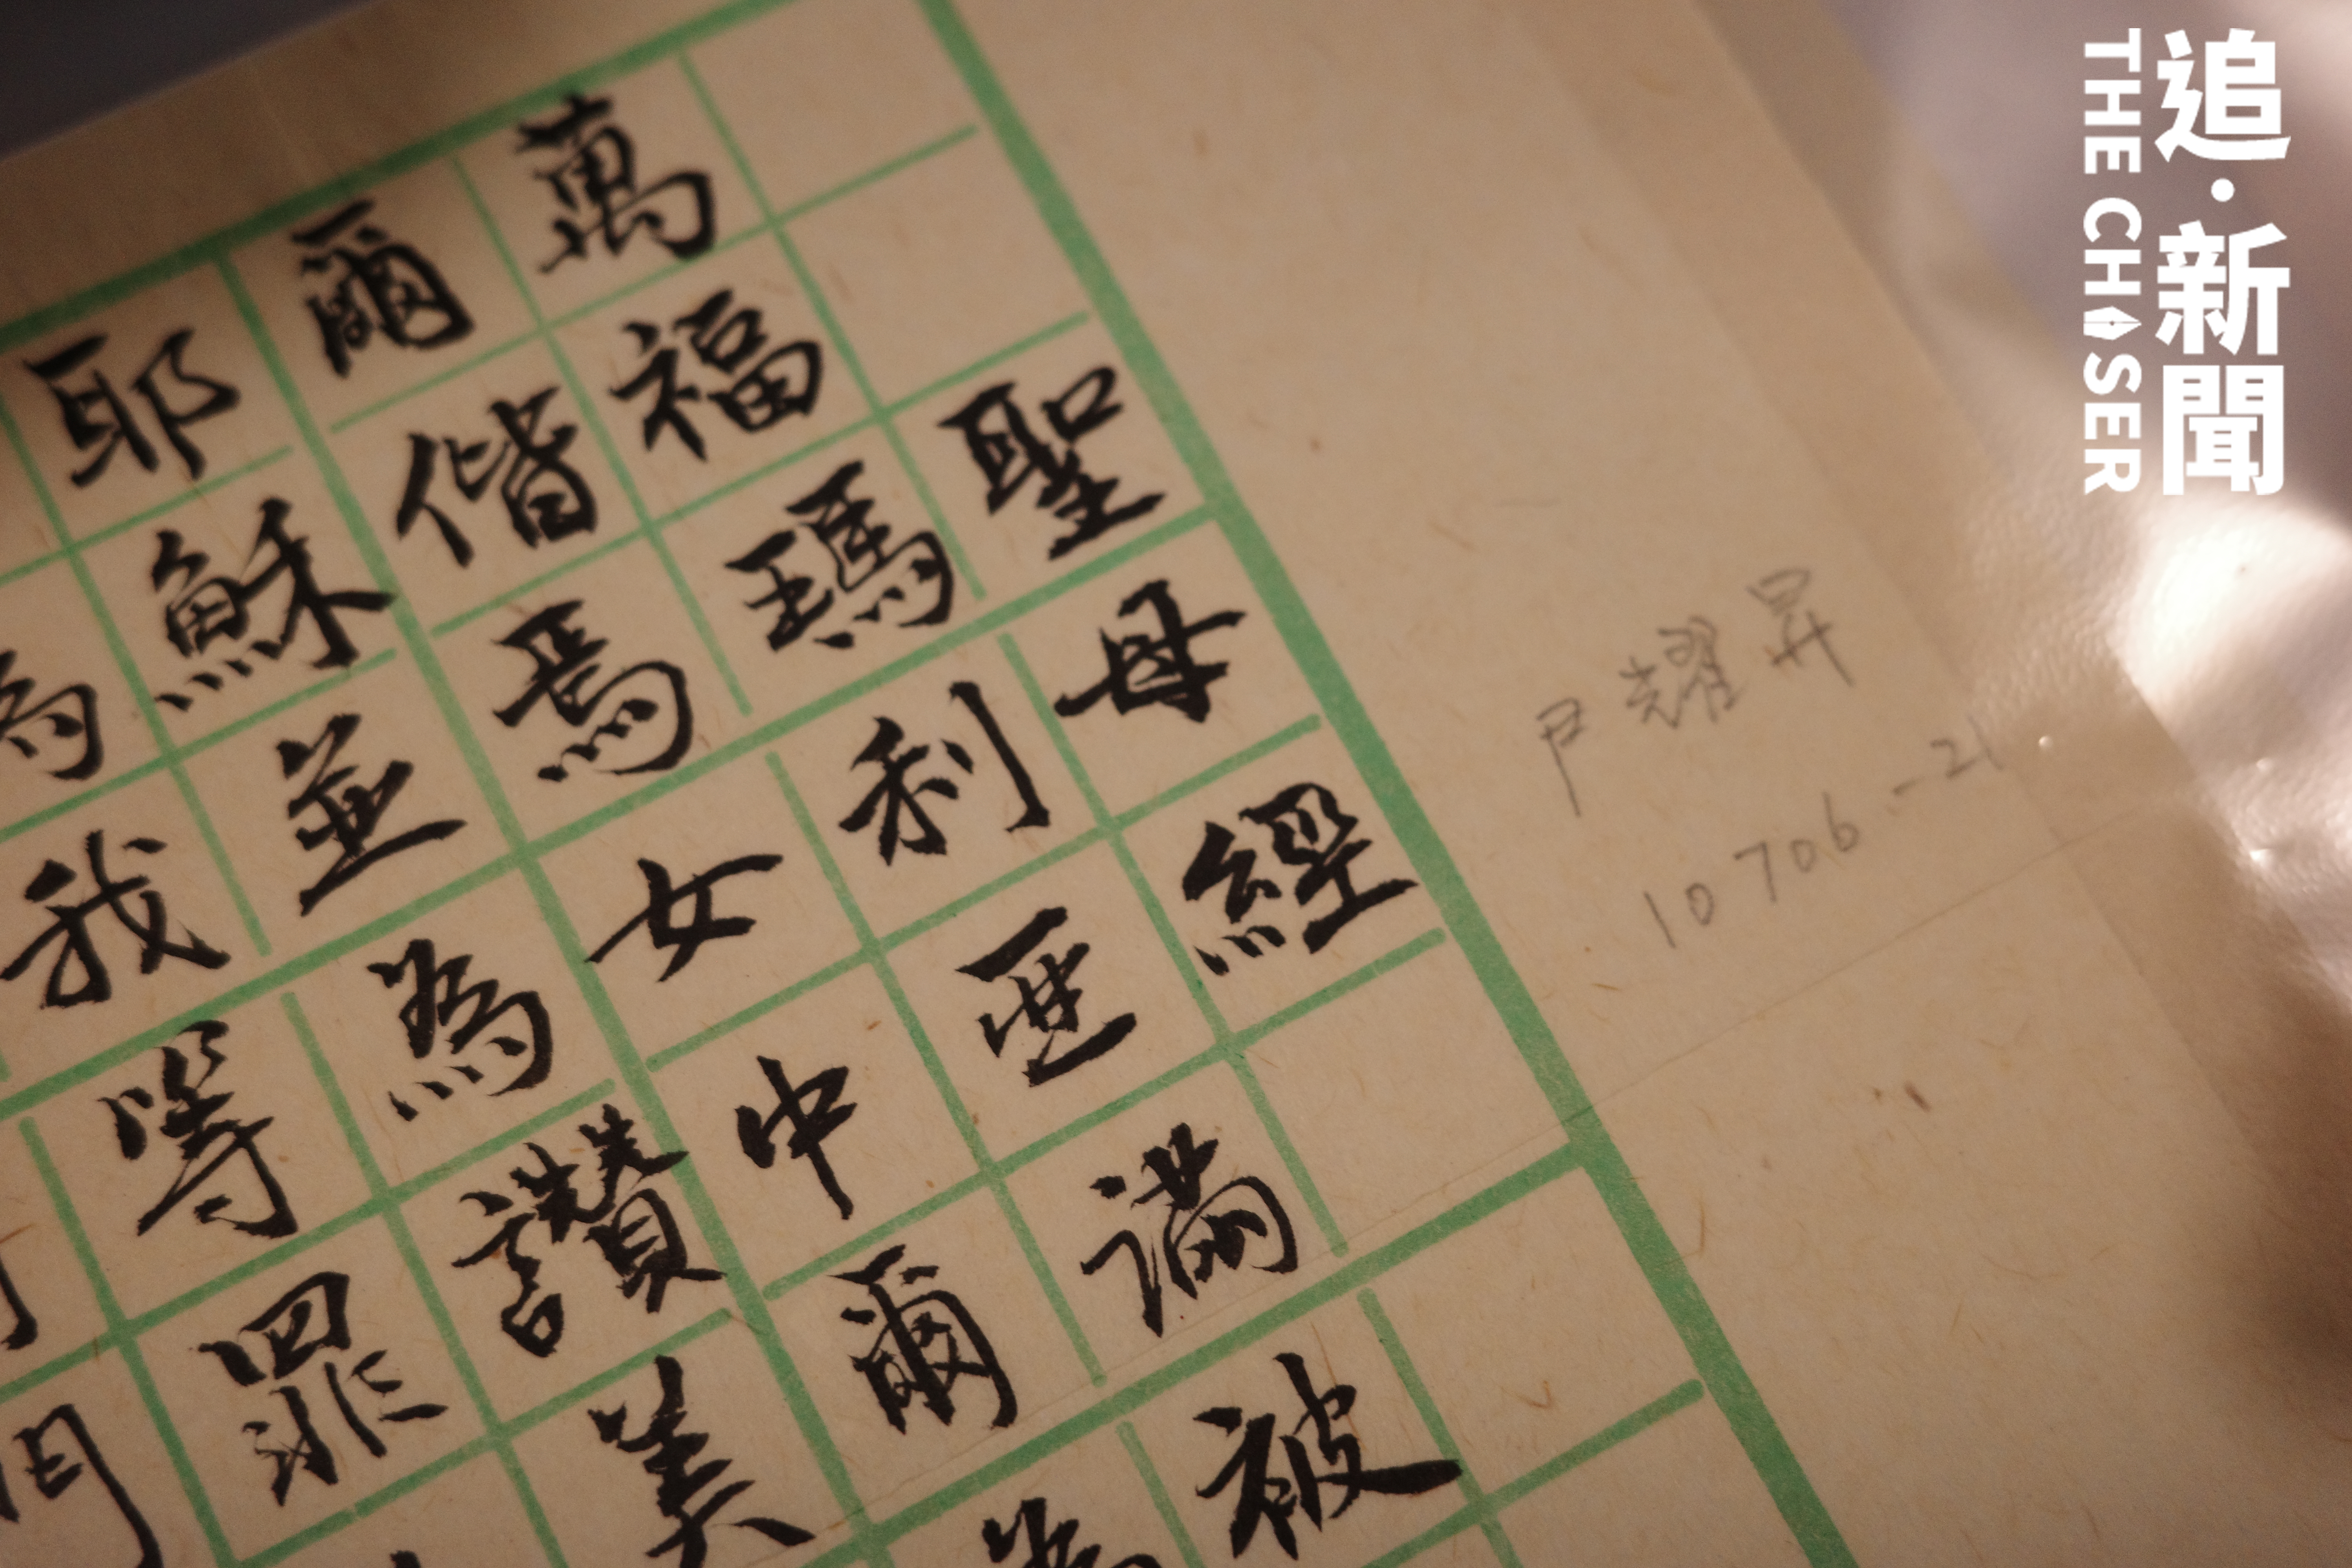 聖母經
萬福瑪利亞滿被
爾偕焉女中爾為
耶穌並為讚美
為我等罪
尹耀昇
10706-21
追·新聞
THE CHASER